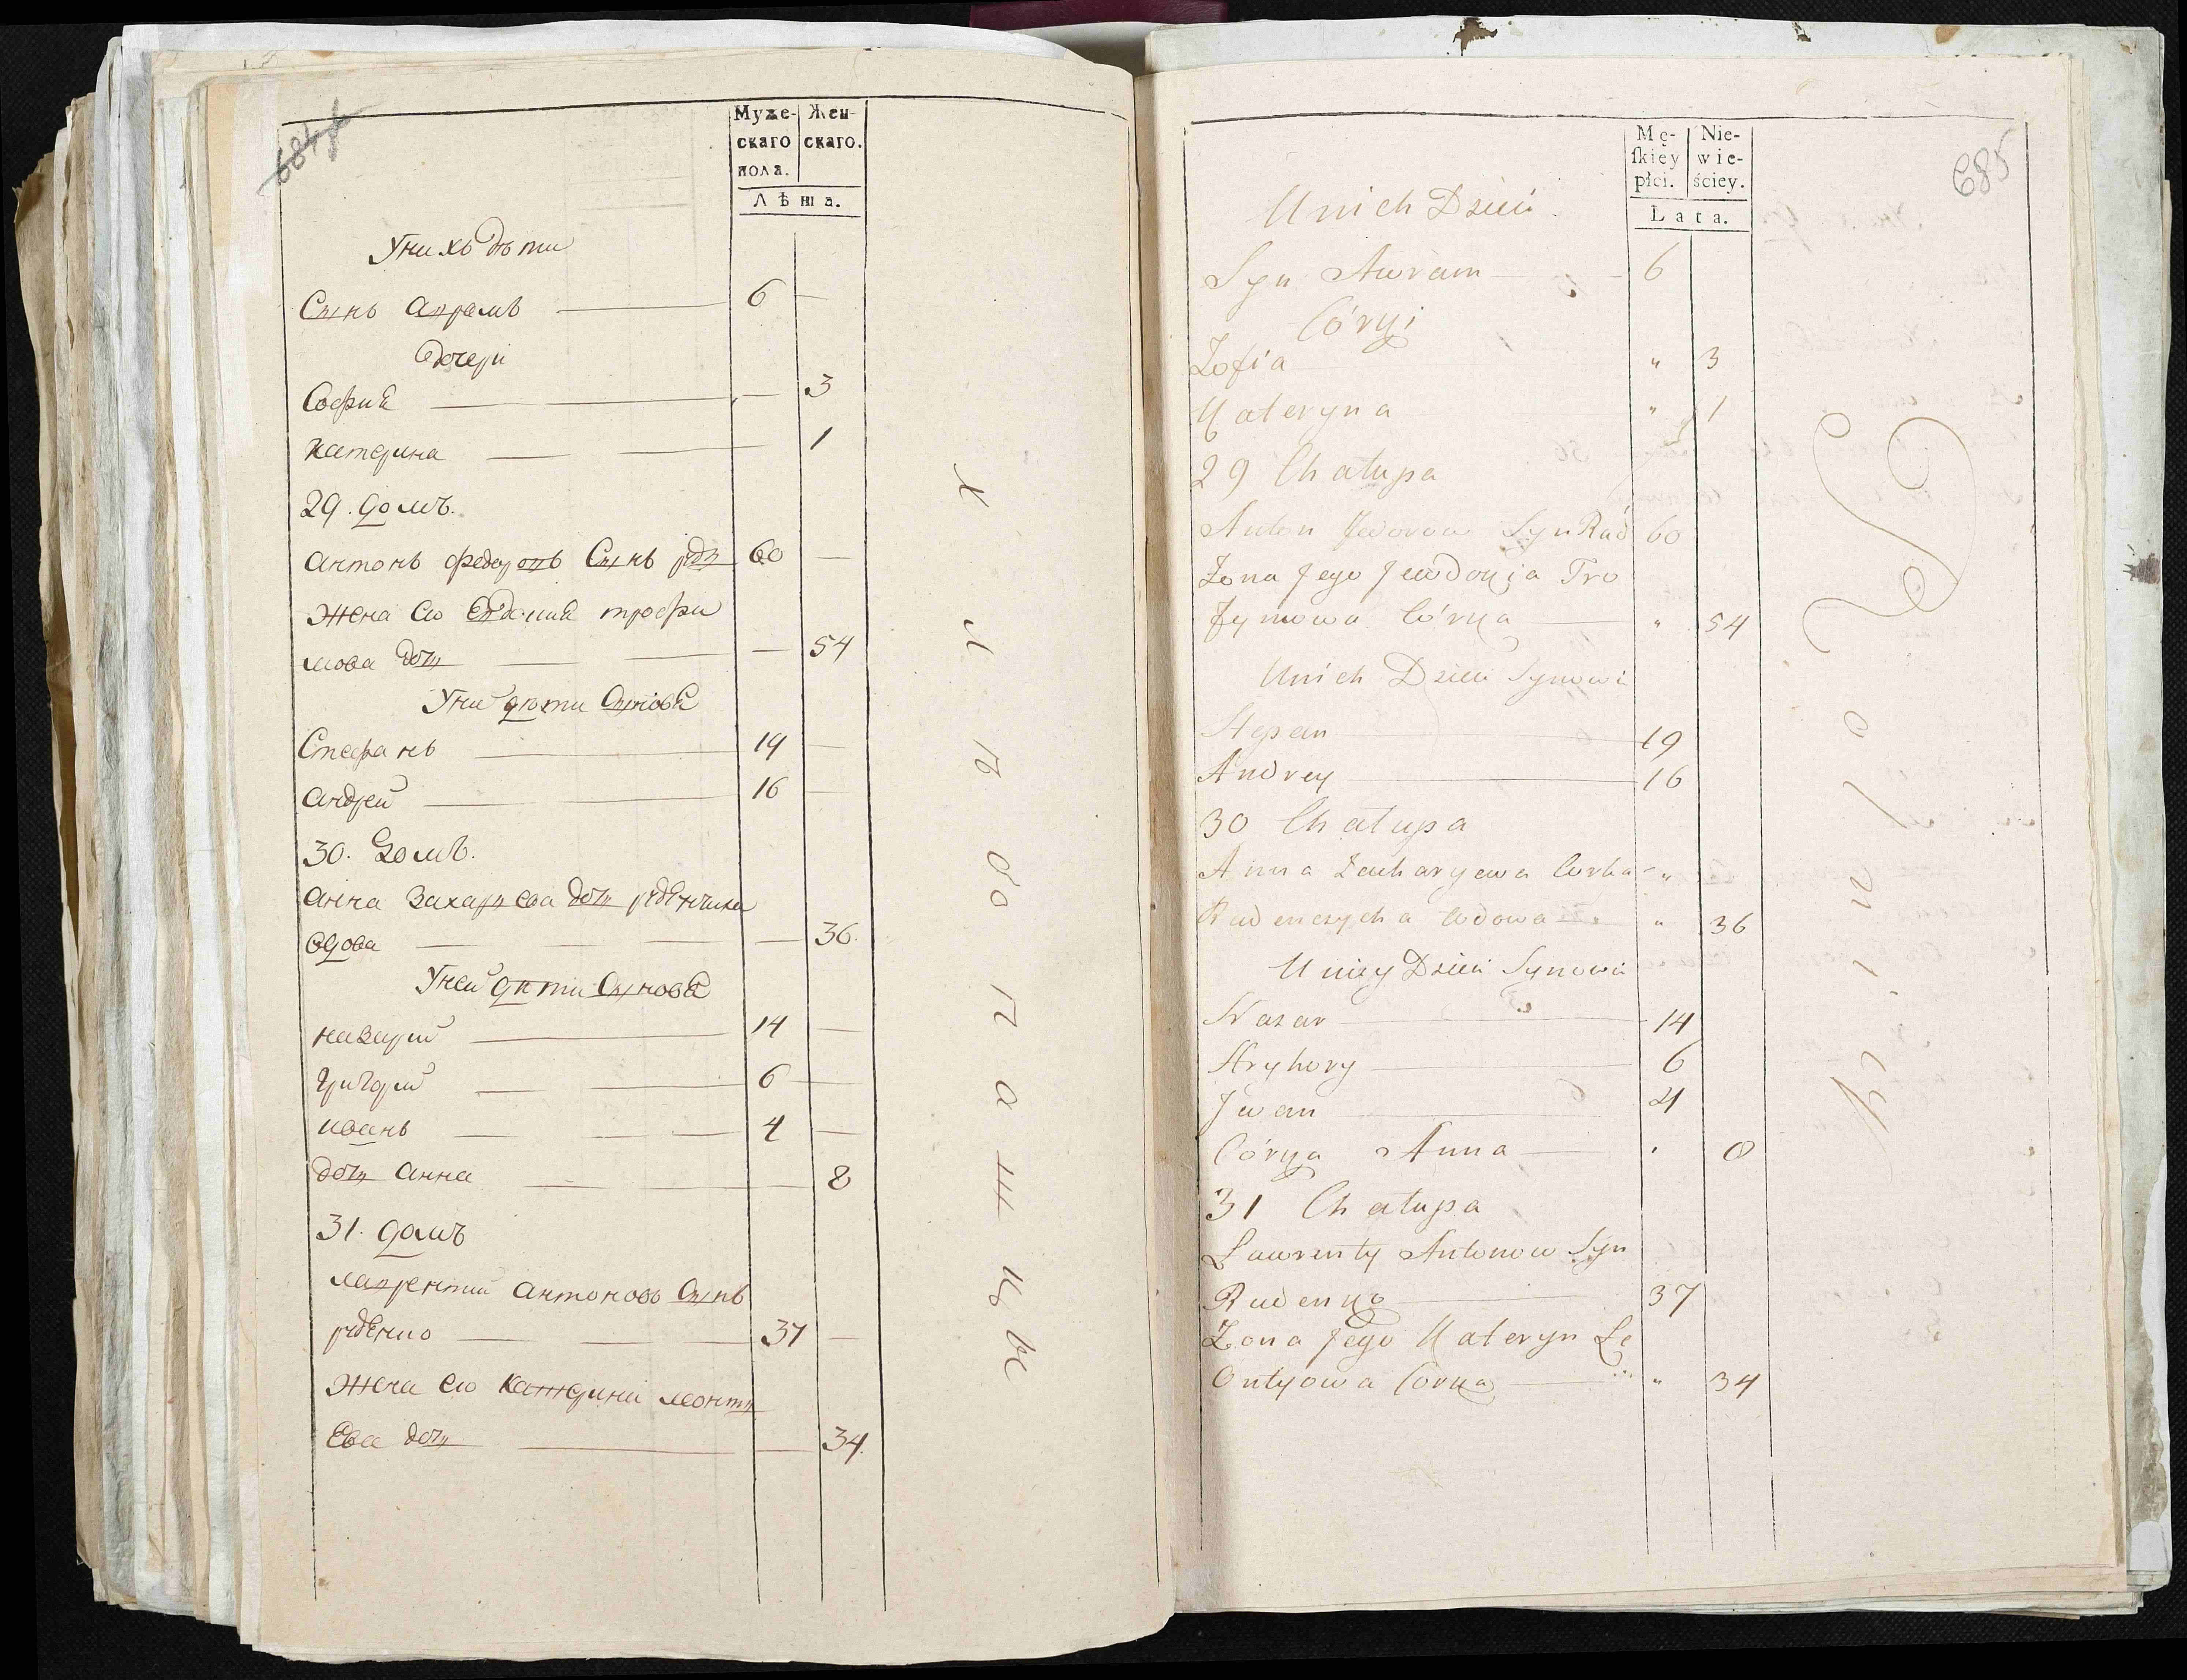 684
Муже-
скаго
пола.
Жен-
скаго.
Лѣта.
У нихъ дѣти
Сынъ Аврамъ 6
Дочери
София 3
Катерина 1
29. домъ.
Антонъ Федоровъ Сынъ 60
Жена ево Евдокия трофи
мова дочь 54
У ни дѣти Сыновя
Стефанъ 19
Андрей 16
30. домъ.
Анна Захариева дочь руденчиха
вдова 36.
У ней дѣти Сыновя
Назарий 14
Григорий 6
Иванъ 4
дочь Анна 8
31. домъ
Лаврентий Антоновъ Сынъ
руденко 37
Жена ево Катерина леонти
Ева дочь 34.
хлѣбопашцы
685
Mę-
ſkiey
płci.
Nie-
wie-
ściey.
Lata.
Unich Dzieci
Syn Awram 6
Córki
Zofia " 3
Kateryna " 1
29 Chałupa
Anton Fedorow Syn Rud 60
Żona Jego Jewdokia Tro
fymowa Córka " 54
Unich Dzieci Synowie
Stepan 19
Andrey 16
30 Chałupa
Anna Zacharyewa Corka "
Rudenczycha wdowa " 36
Uniey Dzieci Synowie
Nazar 14
Hryhory 6
Jwan 4
Córka Anna 8
31 Chałupa
Lawrenty Antonow Syn
Rudenko 37
Żona Jego Kateryn Le
Ontyowa Corka " 34
Rolnicy